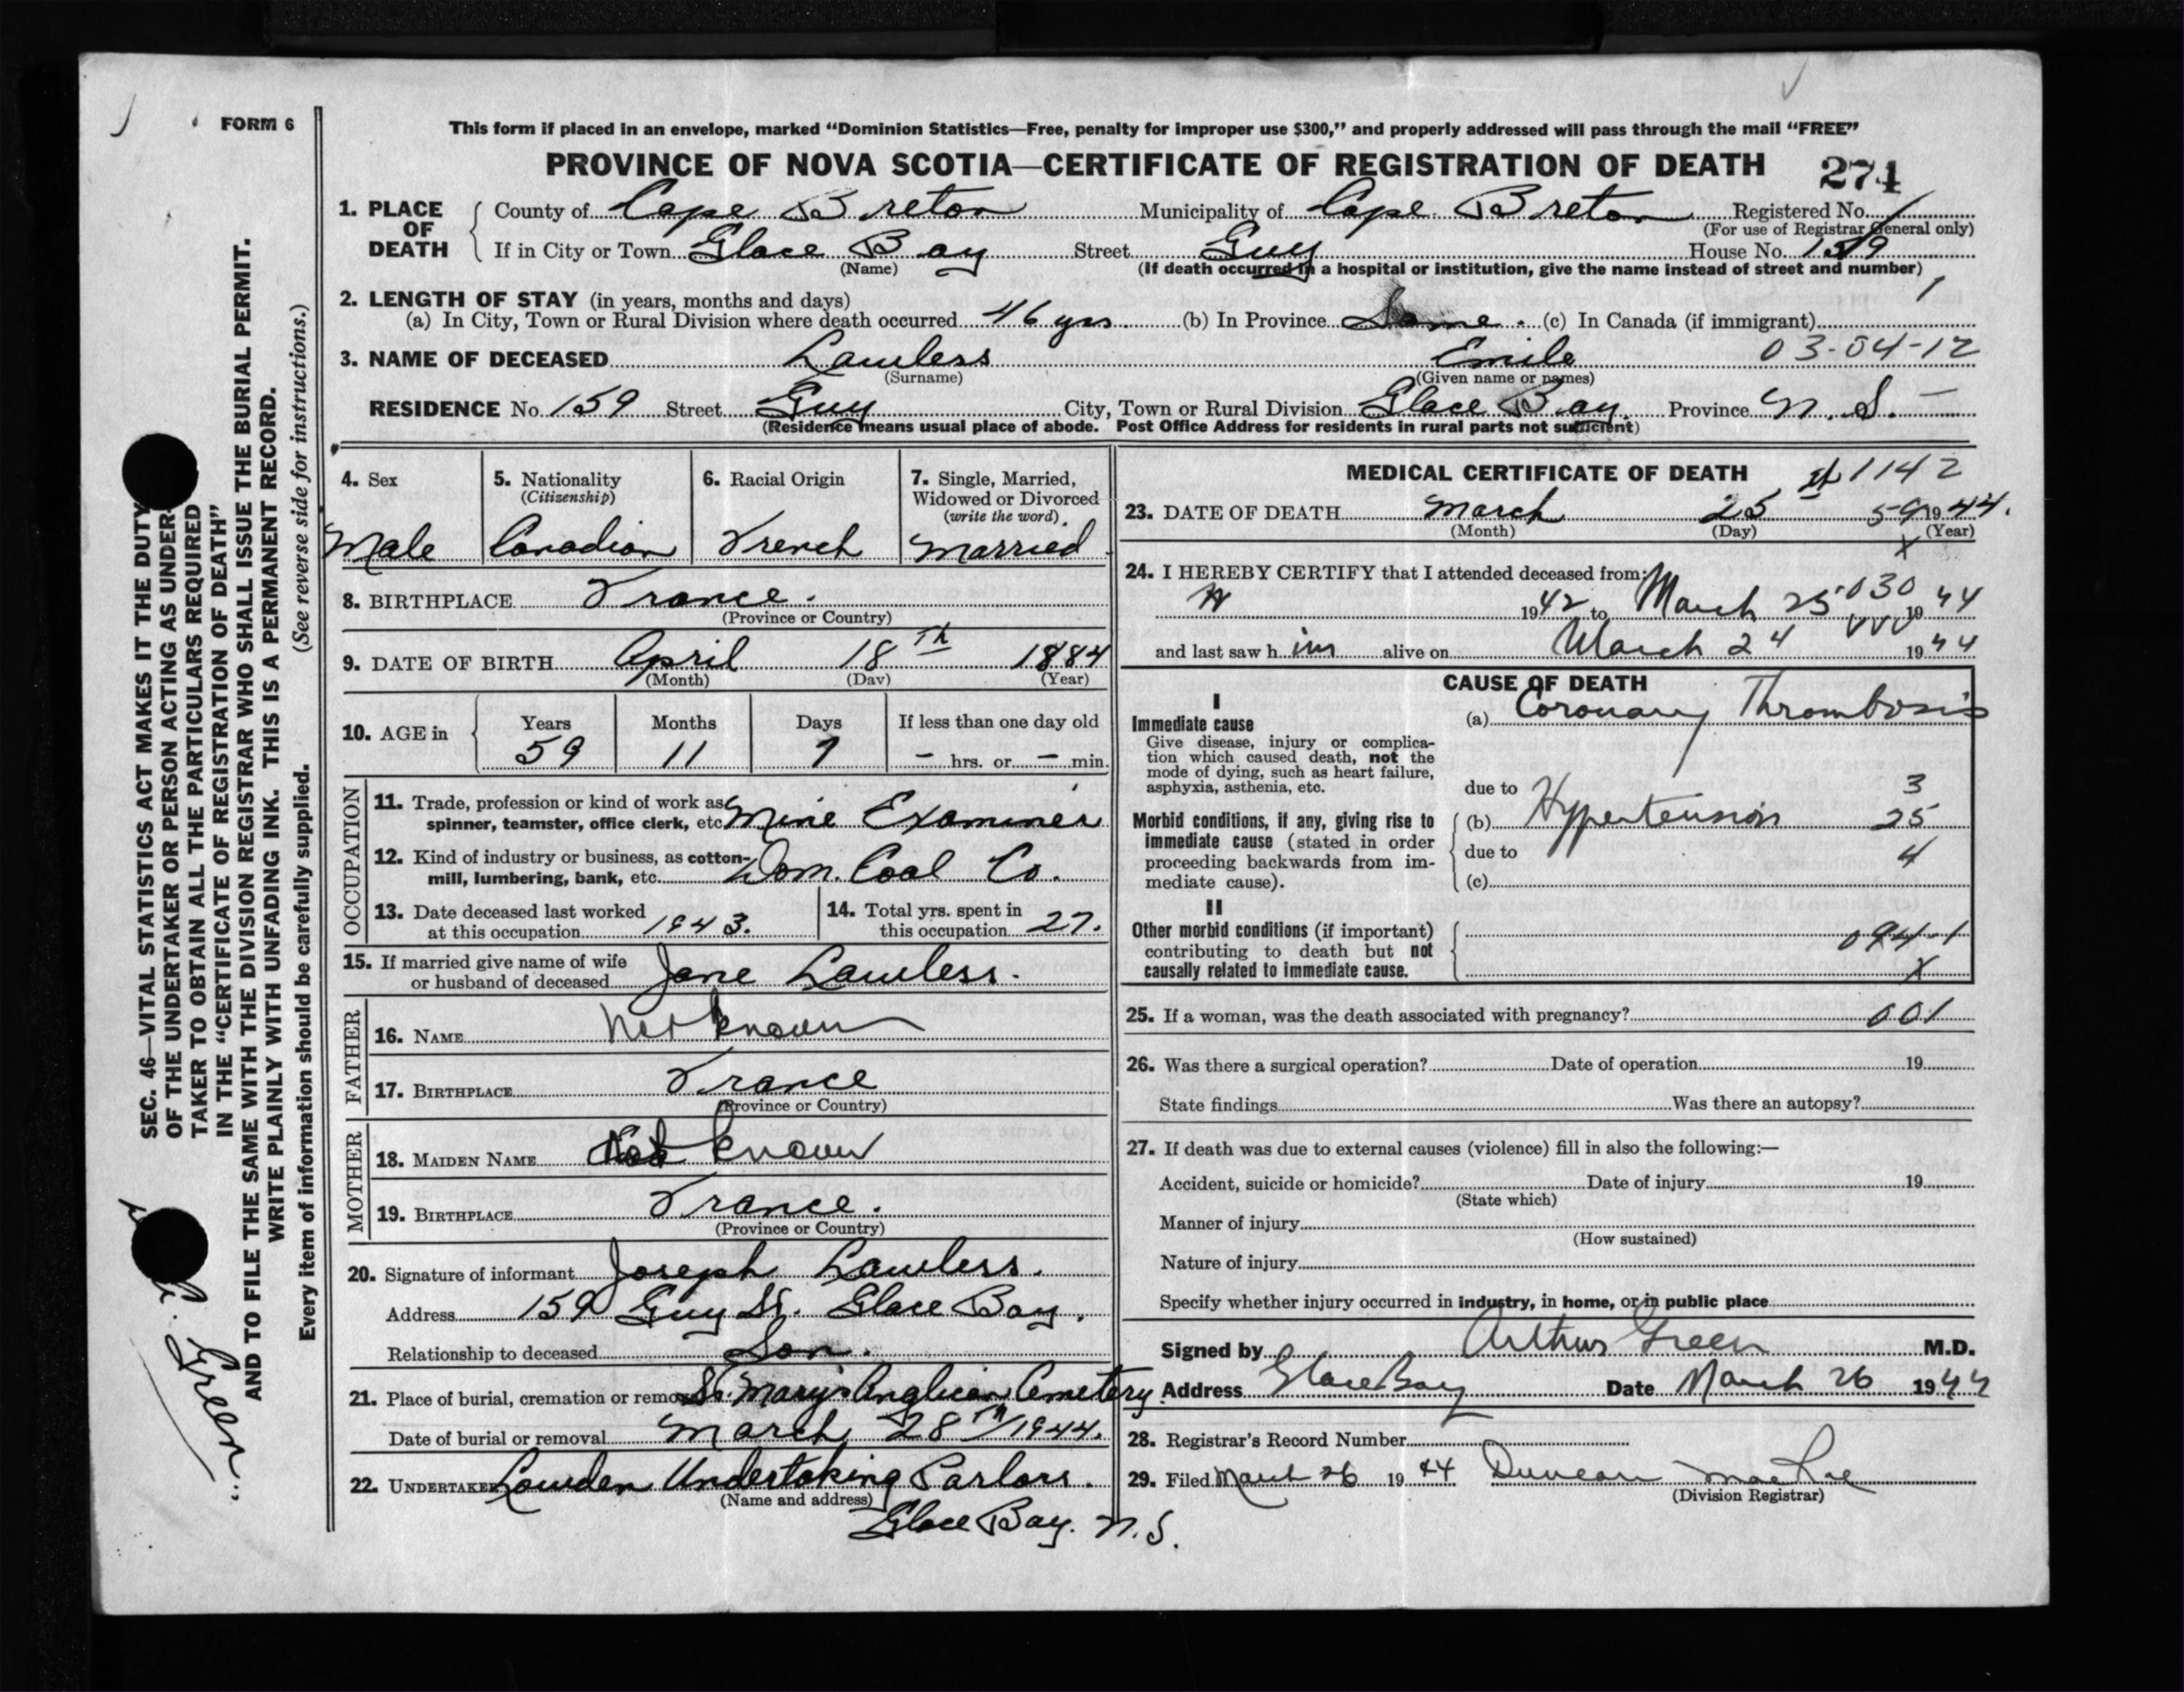 FORM 6
This form if placed in an envelope, marked “Dominion Statistics—Free, penalty for improper use $300,” and properly addressed will pass through the mail “FREE”
PROVINCE OF NOVA SCOTIA—CERTIFICATE OF REGISTRATION OF DEATH 274
1. PLACE OF DEATH { County of Cape Breton Municipality of Cape Breton Registered No.
(For use of Registrar General only)
If in City or Town Glace Bay Street Guy House No. 159
(Name) (If death occurred in a hospital or institution, give the name instead of street and number)
2. LENGTH OF STAY (in years, months and days) 1
(a) In City, Town or Rural Division where death occurred 46 yrs (b) In Province Same. (c) In Canada (if immigrant)
3. NAME OF DECEASED Lawless Emile 03-04-12
(Surname) (Given name or names)
RESIDENCE No. 159 Street Guy City, Town or Rural Division Glace Bay. Province N.S. —
(Residence means usual place of abode. Post Office Address for residents in rural parts not sufficient)
4. Sex 5. Nationality 6. Racial Origin 7. Single, Married,
(Citizenship) Widowed or Divorced
(write the word)
Male Canadian French Married
8. BIRTHPLACE France.
(Province or Country)
9. DATE OF BIRTH April 18th 1884
(Month) (Day) (Year)
10. AGE in Years Months Days If less than one day old
59 11 7 — hrs. or — min.
OCCUPATION
11. Trade, profession or kind of work as
spinner, teamster, office clerk, etc Mine Examiner
12. Kind of industry or business, as cotton-
mill, lumbering, bank, etc. Dom. Coal Co.
13. Date deceased last worked
at this occupation 1943.
14. Total yrs. spent in
this occupation 27.
15. If married give name of wife
or husband of deceased Jane Lawless.
FATHER
16. NAME Not known
17. BIRTHPLACE France
(Province or Country)
MOTHER
18. MAIDEN NAME Not known
19. BIRTHPLACE France.
(Province or Country)
20. Signature of informant Joseph Lawless.
Address 159 Guy St. Glace Bay.
Relationship to deceased Son.
21. Place of burial, cremation or removal St. Mary's Anglican Cemetery
Date of burial or removal March 28th/1944.
22. UNDERTAKER Lowden Undertaking Parlors.
(Name and address)
Glace Bay. N.S.
MEDICAL CERTIFICATE OF DEATH 1142
23. DATE OF DEATH March 25 59 1944.
(Month) (Day) (Year)
X
24. I HEREBY CERTIFY that I attended deceased from:
1942 to March 25 030 1944
and last saw him alive on March 24 1944
CAUSE OF DEATH
I
Immediate cause (a) Coronary Thrombosis
Give disease, injury or complica-
tion which caused death, not the
mode of dying, such as heart failure,
asphyxia, asthenia, etc. due to 3
Morbid conditions, if any, giving rise to (b) Hypertension 25
immediate cause (stated in order
proceeding backwards from im- due to 4
mediate cause). (c)
II
Other morbid conditions (if important) 094-1
contributing to death but not
causally related to immediate cause. X
25. If a woman, was the death associated with pregnancy? 001
26. Was there a surgical operation? Date of operation 19
State findings Was there an autopsy?
27. If death was due to external causes (violence) fill in also the following:—
Accident, suicide or homicide? Date of injury 19
(State which)
Manner of injury
(How sustained)
Nature of injury
Specify whether injury occurred in industry, in home, or in public place
Signed by Arthur Green M.D.
Address Glace Bay Date March 26 1944
28. Registrar's Record Number
29. Filed March 26 1944 Duncan MacRae
(Division Registrar)
SEC. 46—VITAL STATISTICS ACT MAKES IT THE DUTY
OF THE UNDERTAKER OR PERSON ACTING AS UNDER-
TAKER TO OBTAIN ALL THE PARTICULARS REQUIRED
IN THE “CERTIFICATE OF REGISTRATION OF DEATH”
AND TO FILE THE SAME WITH THE DIVISION REGISTRAR WHO SHALL ISSUE THE BURIAL PERMIT.
WRITE PLAINLY WITH UNFADING INK. THIS IS A PERMANENT RECORD.
Every item of information should be carefully supplied. (See reverse side for instructions.)
Green